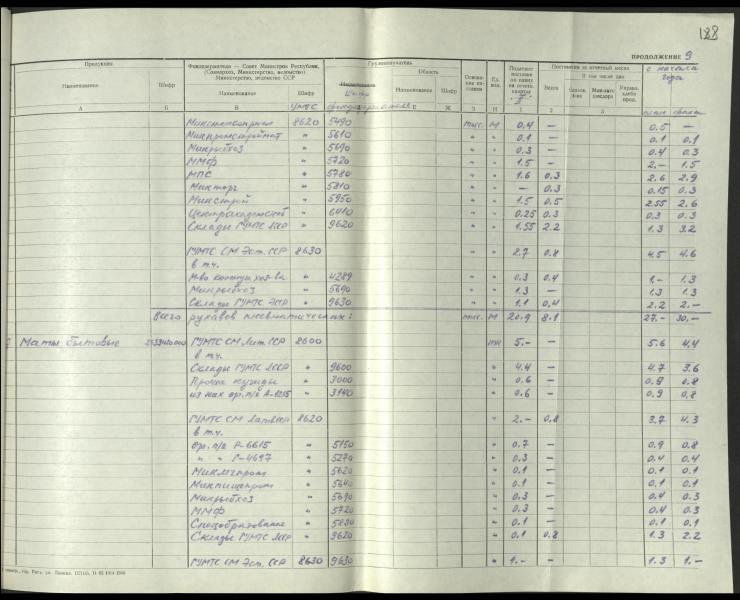 188
ПРОДОЛЖЕНИЕ 9
Продукция
Фондодержатели — Совет Министров Республики, (Совнархоз, Министерство, ведомство) Министерства, ведомства СССР
Грузополучатели
Поставлено за отчетный месяц
с начала года
Наименование Шифр Наименование Шифр Область Наименование Шифр Всего В том числе для:
А Б В Е Ж З И 1 2 3
УМТС фондодержателя план факт
8620 5490 тыс. М 0.4 — 0.5 —
Минпромстроймат " 5610 " " 0.1 — 0.1 0.1
Минрыбхоз " 5690 " " 0.3 — 0.4 0.3
ММФ " 5720 " " 1.5 — 2.- 1.5
МПС " 5780 " " 1.6 0.3 2.6 2.9
Минторг " 5810 " " — 0.3 0.15 0.3
Минстрой " 5950 " " 1.5 0.5 2.55 2.6
" 6410 " " 0.25 0.3 0.3 0.3
Склады ГУМТС ЛССР " 9620 " " 1.55 2.2 1.3 3.2
ГУМТС СМ Эст. ССР 8630 " " 2.7 0.8 4.5 4.6
в т.ч.
М-во коммун. хоз-ва " 4289 " " 0.3 0.4 1.- 1.3
Минрыбхоз " 5690 " " 1.3 — 1.3 1.3
Склады ГУМТС ЭССР " 9630 " " 1.1 0.4 2.2 2.-
Всего рукавов пневматических: тыс. М 20.9 8.1 27.- 30.-
Маты бытовые ГУМТС СМ Лит. ССР 8600 5.- — 5.6 4.4
в т.ч.
Склады ГУМТС ЛССР " 9600 " 4.4 — 4.7 3.6
Прочие нужды " 3000 " 0.6 — 0.9 0.8
из них ор. п/я А-1215 " 3140 " 0.6 — 0.9 0.8
ГУМТС СМ Латв.ССР 8620 " 2.- 0.8 3.7 4.3
в т.ч.
Ор. п/я Р-6615 " 5150 " 0.7 — 0.9 0.8
" " Г-4697 " 5270 " 0.3 — 0.4 0.4
Минлегпром " 5620 " 0.1 — 0.1 0.1
Минпищепром " 5640 " 0.1 — 0.1 0.1
Минрыбхоз " 5690 " 0.3 — 0.4 0.3
ММФ " 5720 " 0.3 — 0.4 0.3
Спецобразование " 5830 " 0.1 — 0.1 0.1
Склады ГУМТС ЛССР " 9620 " 0.1 0.8 1.3 2.2
ГУМТС СМ Эст. ССР 8630 9630 " 1.- — 1.3 1.-